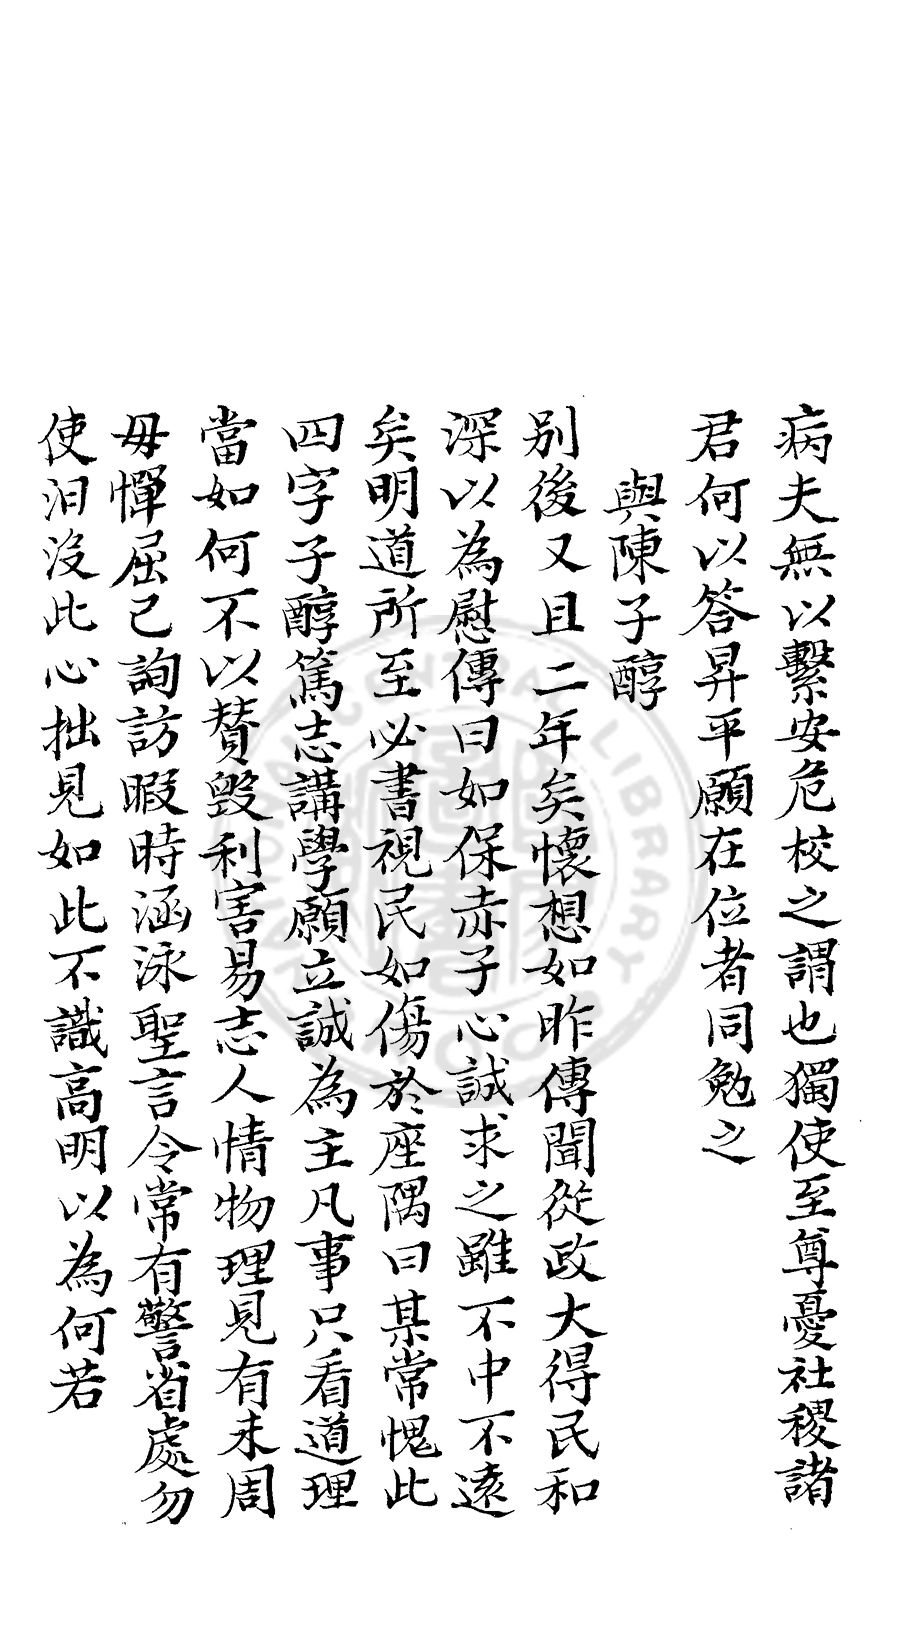 病夫無以繫安危校之謂也獨使至尊憂社稷諸
君何以答昇平願在位者同勉之
與陳子醇
別後又且二年矣懷想如昨傳聞從政大得民和
深以為慰傳曰如保赤子心誠求之雖不中不遠
矣明道所至必書視民如傷於座隅曰某常愧此
四字子醇篤志講學願立誠為主凡事只看道理
當如何不以贊毀利害易志人情物理見有未周
毋憚屈己詢訪暇時涵泳聖言令常有警省處勿
使汨沒此心拙見如此不識高明以為何若
CENTRAL LIBRARY